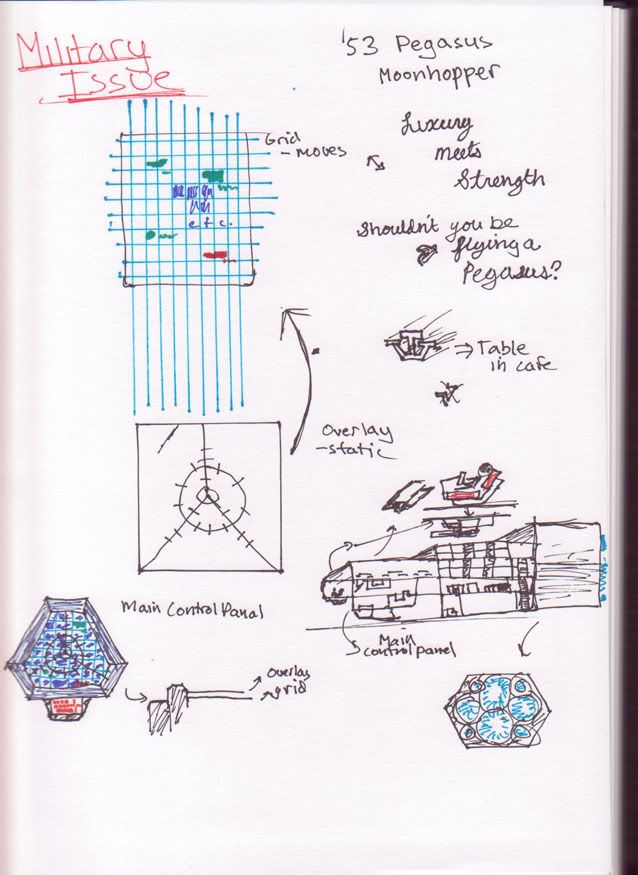 Military
Issue
'53 Pegasus
Moonhopper
Grid
- moves
Luxury
meets
Strength
etc.
Shouldn't you be
flying a
Pegasus?
Table
in cafe
Overlay
- static
Main Control Panal
Main
control panel
Overlay
grid